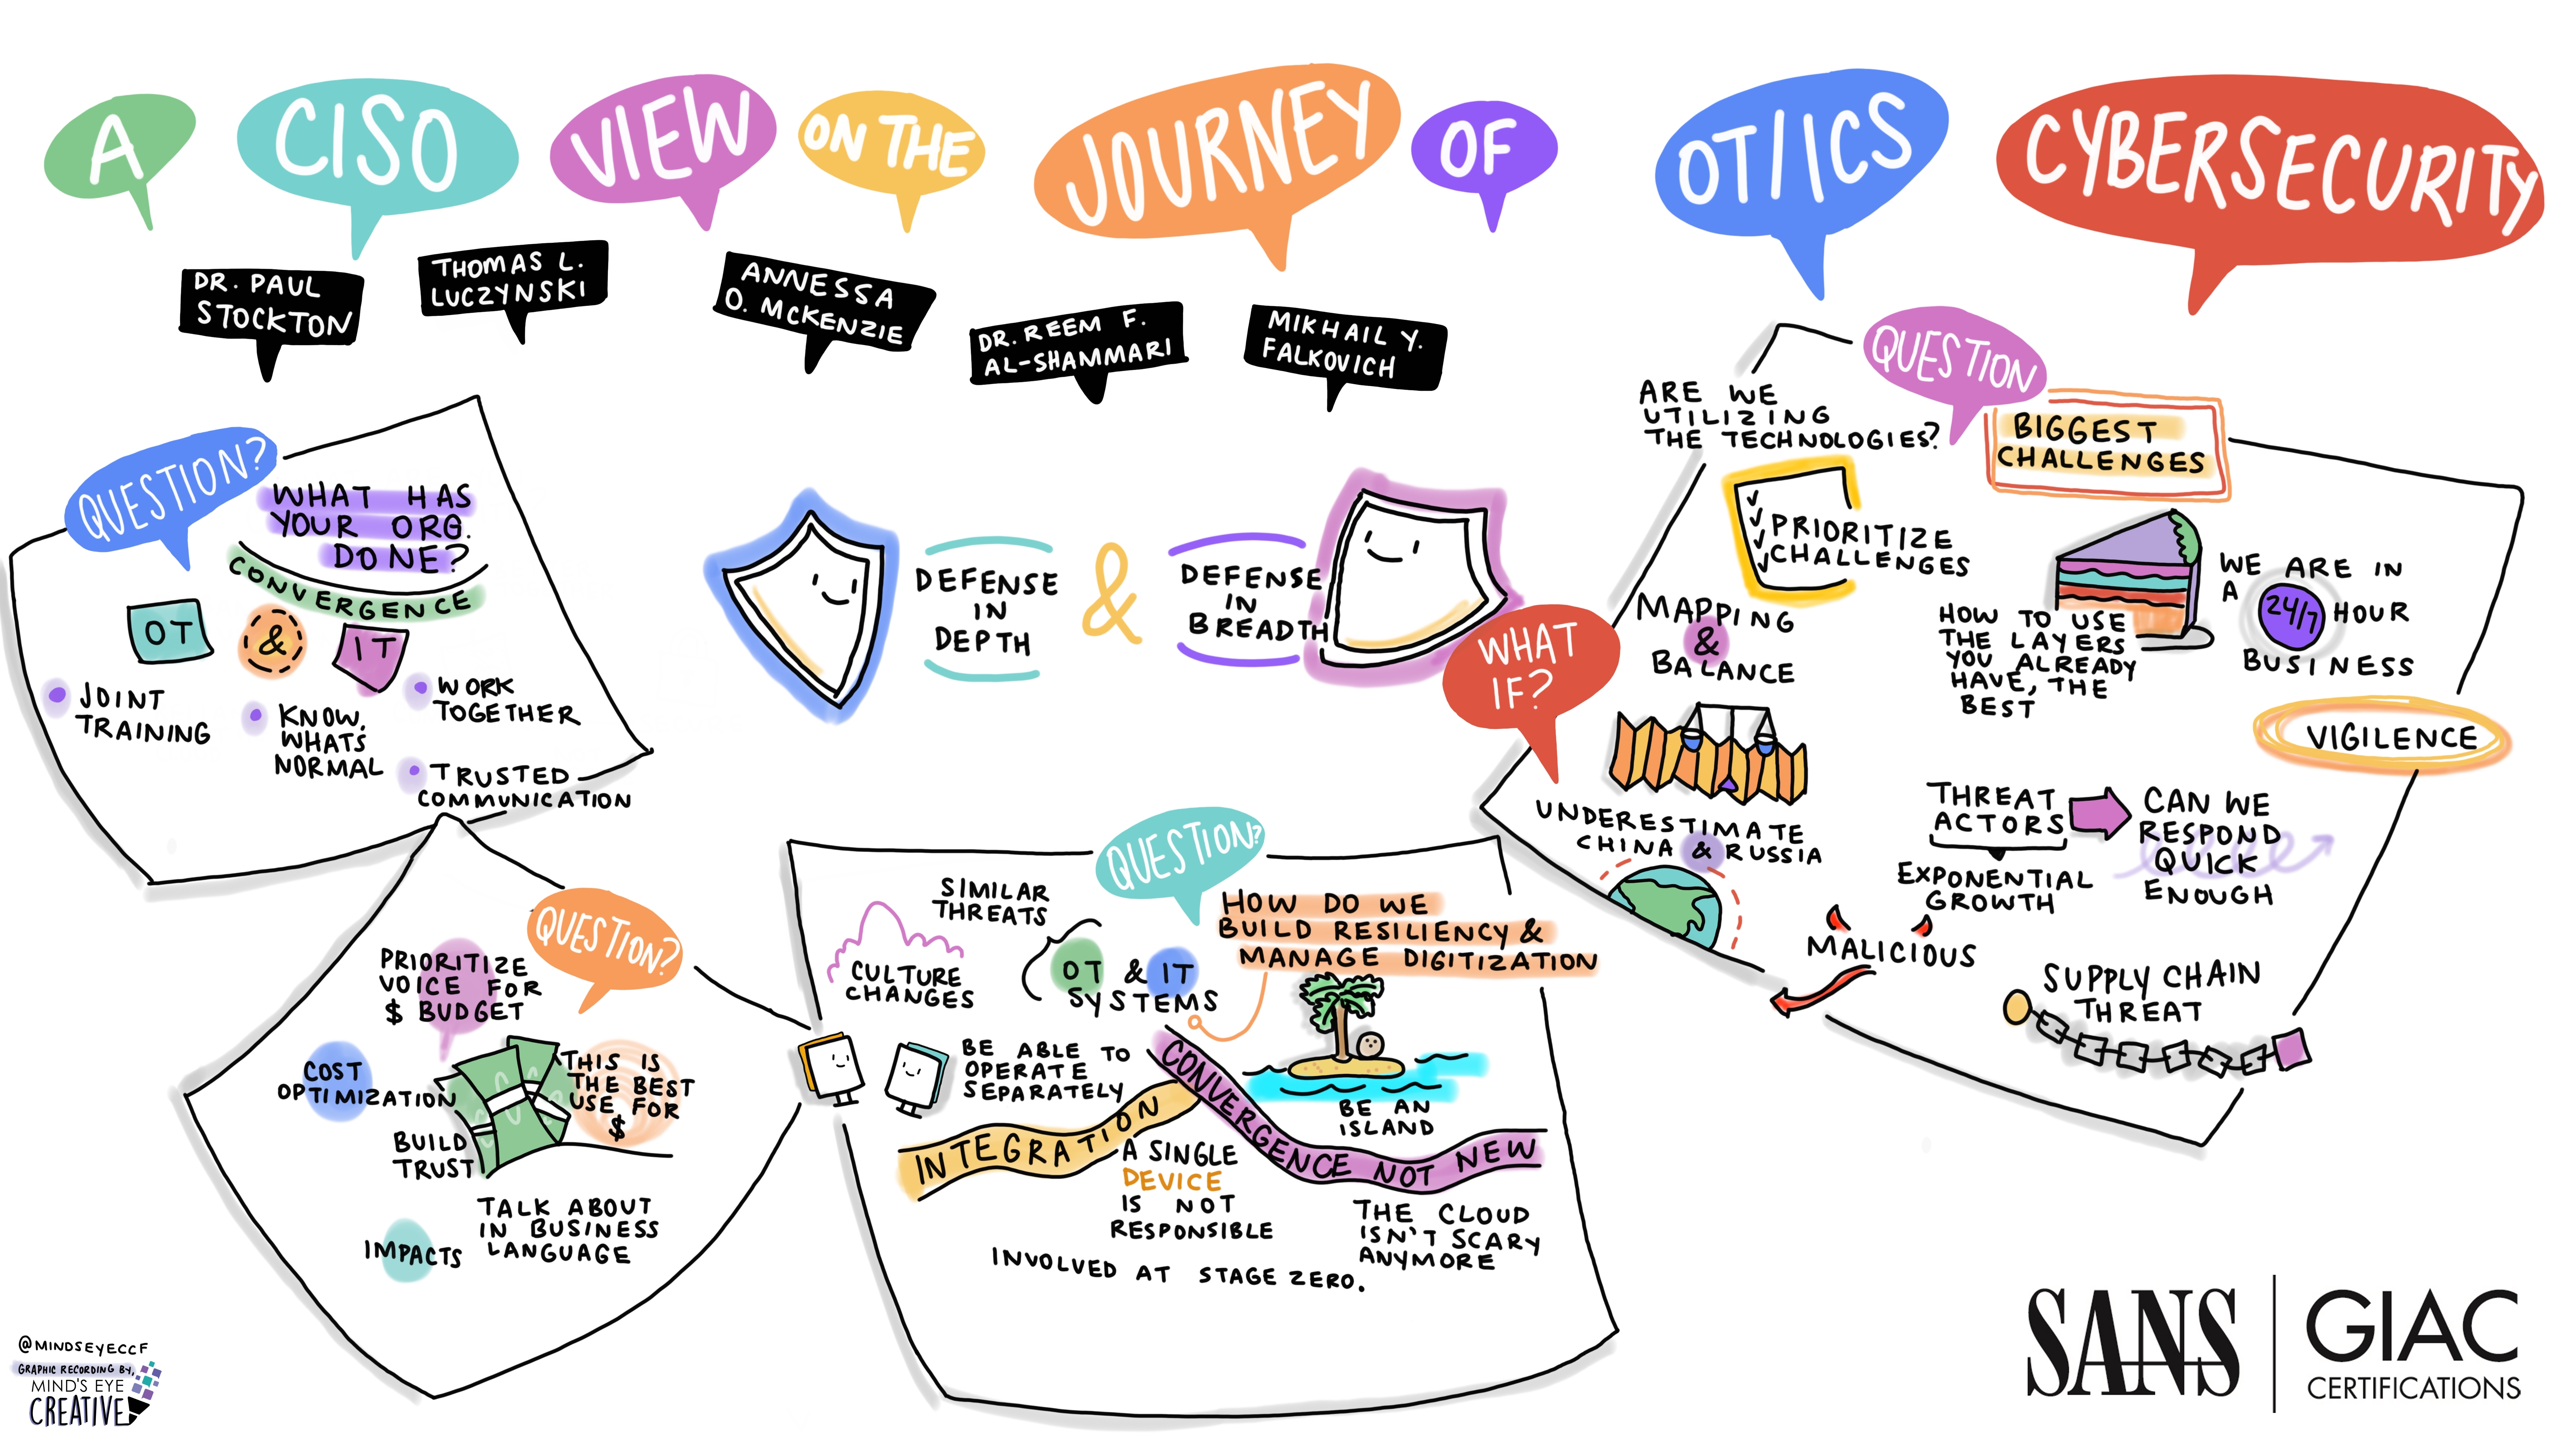 A CISO VIEW ON THE JOURNEY OF OT/ICS CYBERSECURITY
DR. PAUL
STOCKTON
THOMAS L.
LUCZYNSKI
ANNESSA
O. MCKENZIE
DR. REEM F.
AL-SHAMMARI
MIKHAIL Y.
FALKOVICH
QUESTION?
WHAT HAS
YOUR ORG.
DONE?
CONVERGENCE
OT & IT
JOINT
TRAINING
KNOW
WHATS
NORMAL
WORK
TOGETHER
TRUSTED
COMMUNICATION
DEFENSE
IN
DEPTH
&
DEFENSE
IN
BREADTH
QUESTION
BIGGEST
CHALLENGES
ARE WE
UTILIZING
THE TECHNOLOGIES?
PRIORITIZE
CHALLENGES
MAPPING
&
BALANCE
WHAT
IF?
UNDERESTIMATE
CHINA & RUSSIA
HOW TO USE
THE LAYERS
YOU ALREADY
HAVE, THE
BEST
WE ARE IN
A 24/7 HOUR
BUSINESS
VIGILENCE
THREAT
ACTORS
EXPONENTIAL
GROWTH
CAN WE
RESPOND
QUICK
ENOUGH
MALICIOUS
SUPPLY CHAIN
THREAT
QUESTION?
PRIORITIZE
VOICE FOR
$ BUDGET
COST
OPTIMIZATION
THIS IS
THE BEST
USE FOR
$
BUILD
TRUST
TALK ABOUT
IN BUSINESS
LANGUAGE
IMPACTS
QUESTION?
HOW DO WE
BUILD RESILIENCY &
MANAGE DIGITIZATION
SIMILAR
THREATS
OT & IT
SYSTEMS
CULTURE
CHANGES
BE ABLE TO
OPERATE
SEPARATELY
BE AN
ISLAND
INTEGRATION
CONVERGENCE NOT NEW
A SINGLE
DEVICE
IS NOT
RESPONSIBLE
THE CLOUD
ISN'T SCARY
ANYMORE
INVOLVED AT STAGE ZERO.
@MINDSEYECCF
GRAPHIC RECORDING BY,
MIND'S EYE
CREATIVE
SANS
GIAC
CERTIFICATIONS